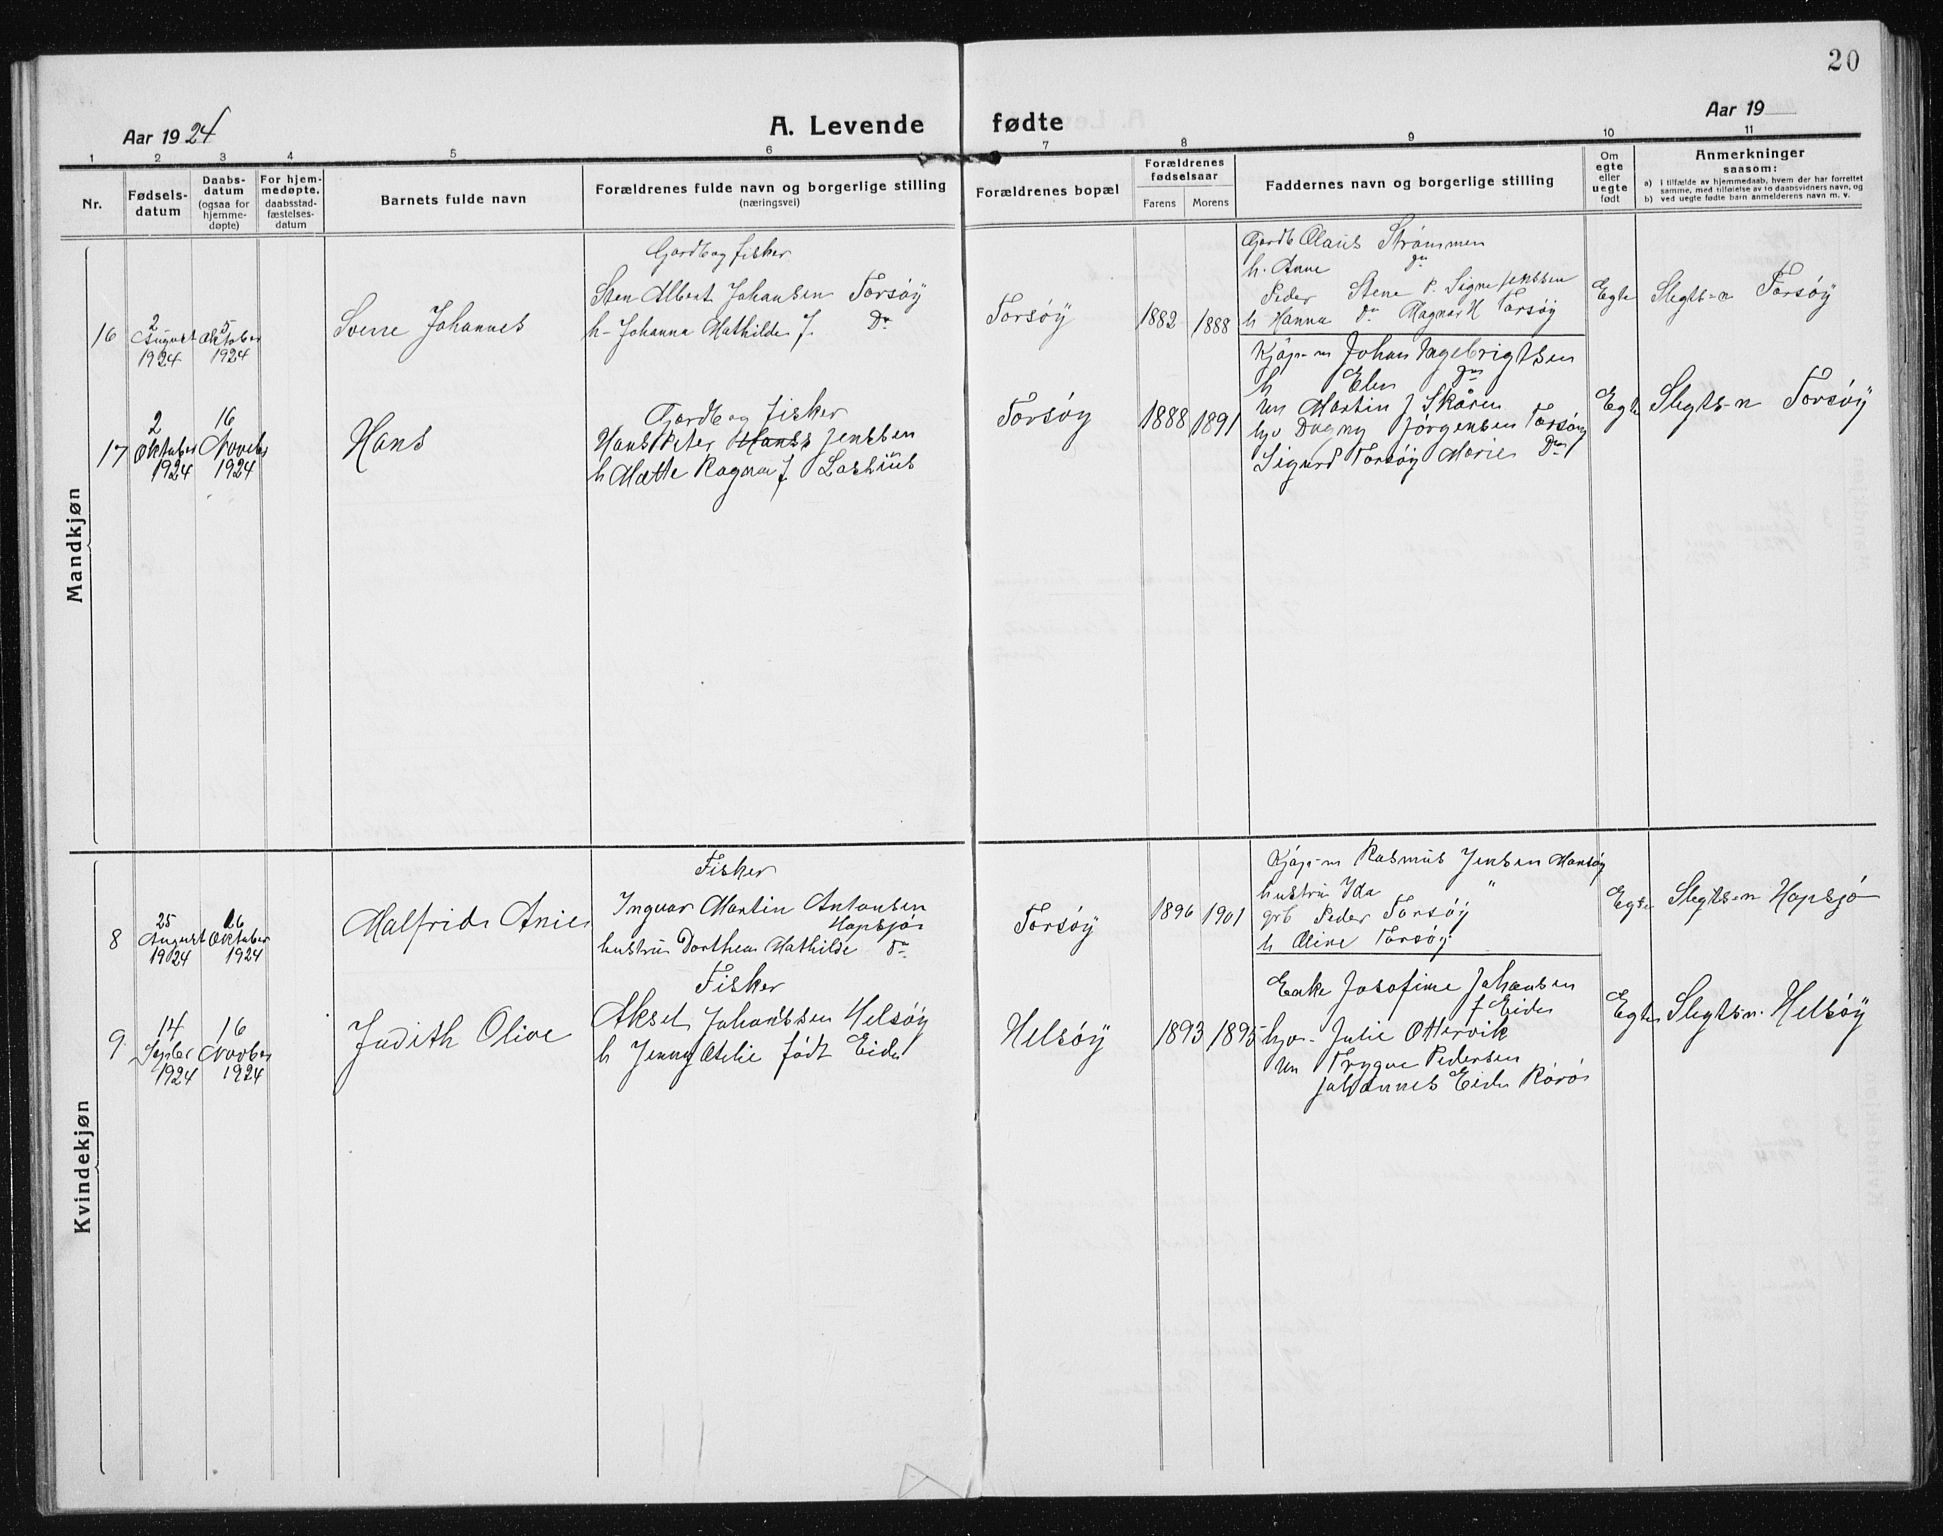 20
Aar 1924
A. Levende fødte
Aar 19
1 2 3 4 5 6 7 8 9 10 11
Nr.
Fødsels-
datum
Daabs-
datum
(ogsaa for
hjemme-
døpte)
For hjem-
medøpte,
daabsstad-
fæstelses-
datum
Barnets fulde navn
Forældrenes fulde navn og borgerlige stilling
(næringsvei)
Forældrenes bopæl
Forældrenes
fødselsaar
Farens Morens
Faddernes navn og borgerlige stilling
Om
egte
eller
uegte
født
Anmerkninger
saasom:
a) I tilfælde av hjemmedaab, hvem der har forrettet
samme, med tilføielse av to daabsvidners navn, og
b) ved uegte fødte barn anmelderens navn m. v.
Mandkjøn
16
2
August
1924
5
Oktober
1924
Sverre Johannes
Gardb og fisker
Sten Albert Johansen Torsøy
h- Johanna Mathilde J. Do
Torsøy
1882 1888
Gardb Olaus Strømmen
h. Anne do
Peder Stene P. Signe Jenssen
h Hanna do Ragnar H Torsøy
Egte
Slegts-n Torsøy
17
2
Oktober
1924
16
Novebr
1924
Hans
Gardb og fisker
Hans Peter Hanss Jenssen
h Mette Ragna f Lossius
Torsøy
1888 1891
Kjøp-m Johan Ingebrigtsen
h Elen do
un Martin J Skåren
hjv Dagny Jørgensen Torsøy
Sigurd Torsøy Marie Do
Egte
Slegts-n Torsøy
Kvindekjøn
8
25
August
1924
26
Oktober
1924
Malfrid Anie
Fisker
Ingvar Martin Antonsen
Hopsjø
hustru Dorthea Mathilde do
Torsøy
1896 1901
Kjøp-m Rasmus Jensen Mansøy
hustru Ida "
grb Peder Torsøy
h Oline Torsøy
Egte
Slegts-n Hopsjø
9
14
Septbr
1924
16
Novbr
1924
Judith Olive
Fisker
Aksel Johanssen Helsøy
h Jenny Otelie født Eide
Helsøy
1893 1895
Enke Josefine Johansen
f Eide
hjv- Julie Ottervik
un Trygve Pedersen
Johannes Eide
Egte
Slegts-n. Helsøy